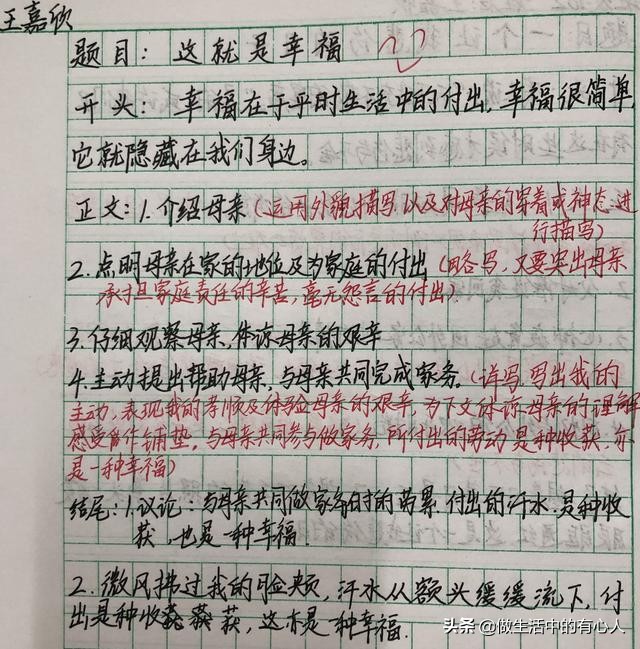 王嘉欣
题目：这就是幸福
开头：幸福在于平时生活中的付出，幸福很简单
它就隐藏在我们身边。
正文：1.介绍母亲（运用外貌描写以及对母亲的穿着或神态进
行描写）
2.点明母亲在家的地位及为家庭的付出（略写，又要突出母亲
承担家庭责任的辛苦，毫无怨言的付出）
3.仔细观察母亲，体谅母亲的艰辛
4.主动提出帮助母亲，与母亲共同完成家务。（详写，写出我的
主动，表现我的孝顺及体验母亲的艰辛，为下文体谅母亲的理解
感受作铺垫。与母亲共同参与做家务，所付出的劳动是种收获，亦
是一种幸福）
结尾：1.议论：与母亲共同做家务时的劳累，付出的汗水，是种收
获，也是一种幸福
2.微风拂过我的脸颊，汗水从额头缓缓流下，付
出是种收获，这才是一种幸福.
头条 @做生活中的有心人